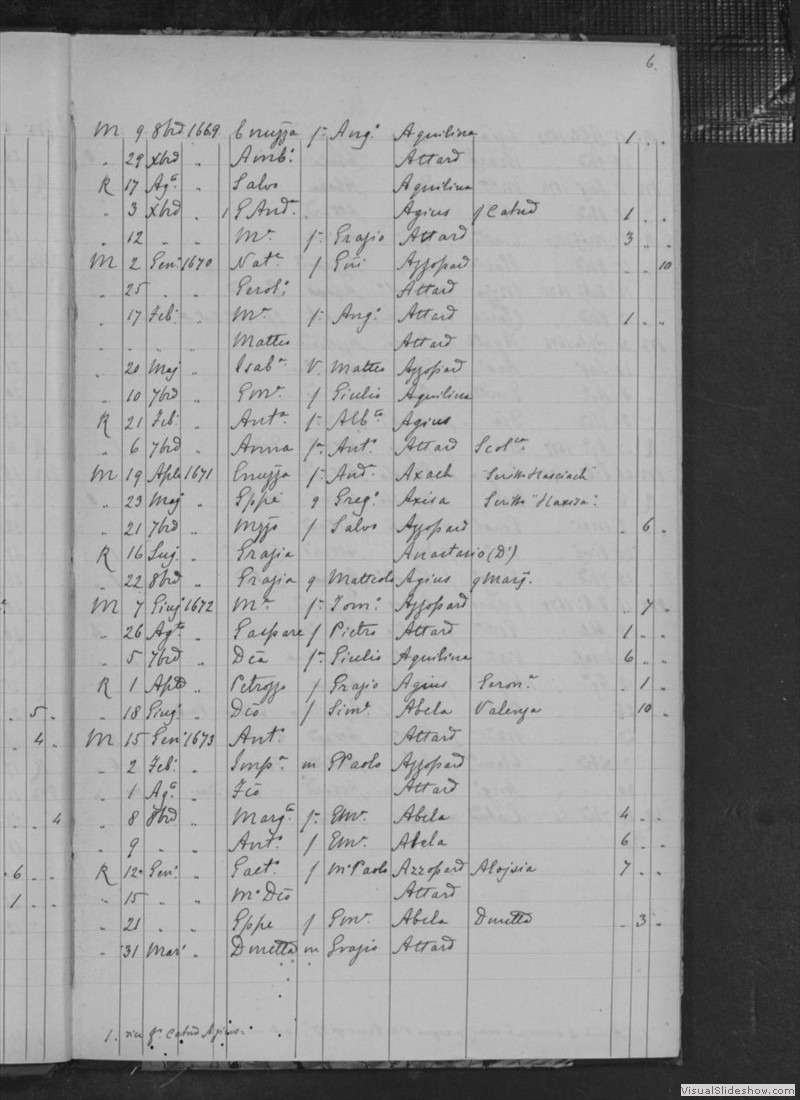 6.
M 9 8brd 1669 Cruzza fa Ango Aquilina 1 . .
" 29 Xbrd " Ambo Attard
R 17 Aga " Salvo Aquilina
" 3 Xbrd " 1 G Anda Agius f Catrd 1 . .
" 12 " " Ma fa Grazio Attard 3 . .
M 2 Geno 1670 Nata f Gio Azzopard . . 10
" 25 " " Gerolo Attard
" 17 Feb. " Ma fa Ango Attard 1 . .
" " " Matteo Attard
" 20 Maj " Isaba V. Matteo Azzopard
" 10 7brd " Gma f Giulio Aquilina
R 21 Feb. " Anta fa Alb Agius
" 6 7brd " Anna fa Anto Attard Scolca
M 19 Aple 1671 Cruzza fa And. Axach Scritto Hasciach
" 23 Maj " Gppe q Grego Axisa Scritto "Haxisa".
" 21 7brd " Mzzo f Salvo Azzopard . 6 .
R 16 Lug " Grazia Anastasio (D')
" 22 8brd " Grazia q Matteolo Agius q Marj.
M 7 Giug 1672 Ma fa Tomo Azzopard . 7 .
" 26 Aga " Gaspare f Pietro Attard 1 . .
" 5 7brd " Dca fa Giulio Aquilina 6 . .
R 1 Apld " Petrozzo f Grazio Agius Gerona . 1 .
" 18 Giug " Dco f Simo Abela Valenza 10 .
M 15 Gen 1673 Anto Attard
" 2 Feb. " Impa m GPaolo Azzopard
" 1 Aga " Fco Attard
" 8 8brd " Marga fa Gma Abela 4 . .
" 9 " " Anto f Gma Abela 6 . .
R 12 Gen. " Gaeto f Mo Paolo Azzopard Alojsia 7 . .
" 15 " " Mo Dco Attard
" 21 " Gppe f Gma Abela Dmetta . 3 .
" 31 Mar " Dmetta m Grazio Attard
1. Catrd Agius
5 .
4 .
. . 4
. 6 . .
1 . .
VisualSlideshow.com